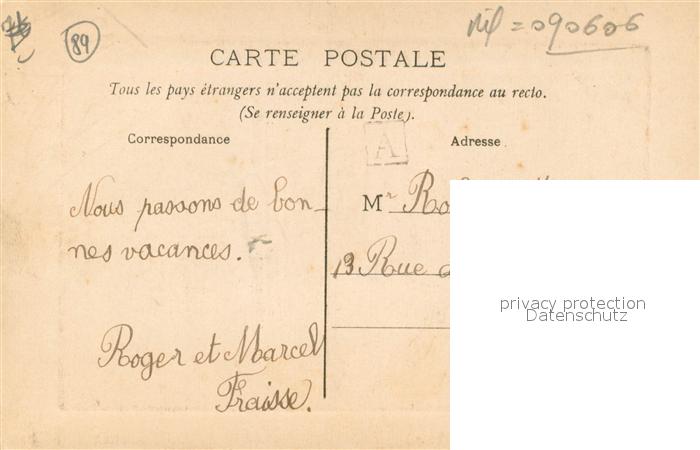 89
CARTE POSTALE
Tous les pays étrangers n'acceptent pas la correspondance au recto.
(Se renseigner à la Poste).
Correspondance
Nous passons de bon-
nes vacances.
Roger et Marcel
Fraisse.
A
Adresse
Mr Ro
13 Rue
privacy protection
Datenschutz